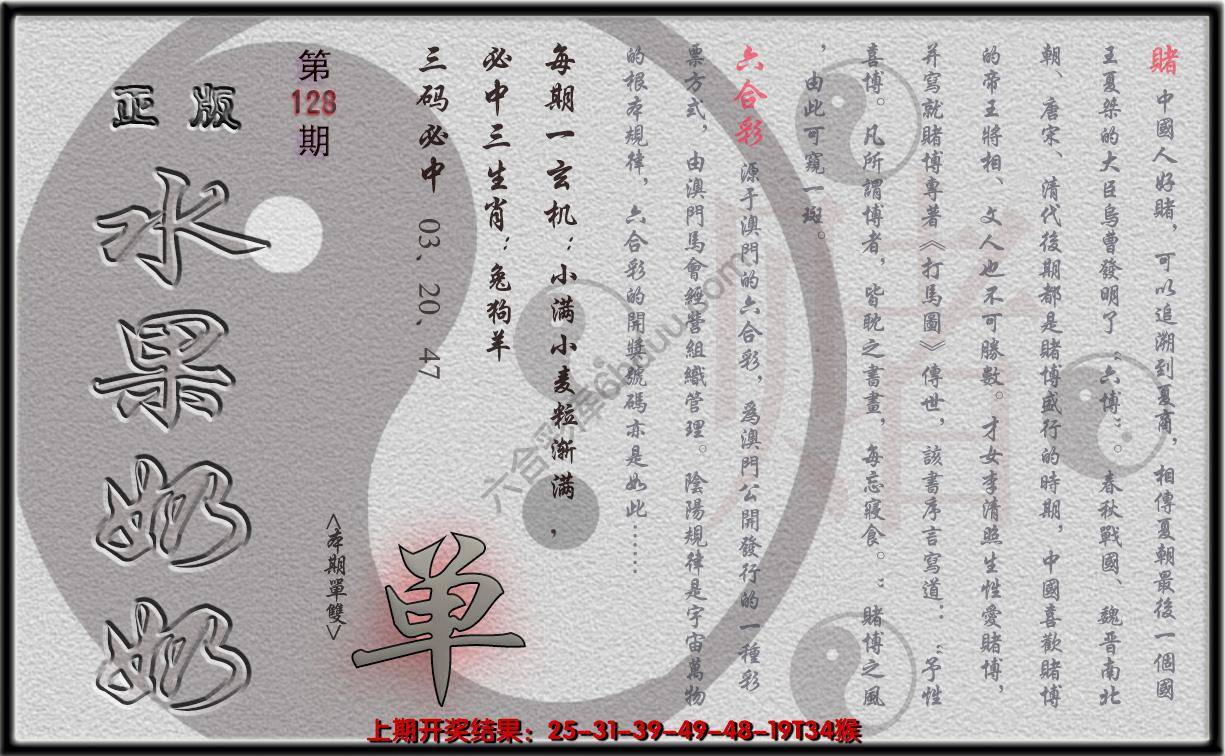 賭 中國人好賭，可以追溯到夏商，相傳夏朝最後一個國
王夏桀的大臣烏曹發明了“六博”。春秋戰國、魏晋南北
朝、唐宋、清代後期都是賭博盛行的時期，中國喜歡賭博
的帝王將相、文人也不可勝數。才女李清照生性愛賭博，
并寫就賭博專著《打馬圖》傳世，該書序言寫道：“予性
喜博。凡所謂博者，皆耽之書畫，每忘寢食。”賭博之風
，由此可窺一斑。
六合彩 源于澳門的六合彩，爲澳門公開發行的一種彩
票方式，由澳門馬會經營組織管理。陰陽規律是宇宙萬物
的根本規律，六合彩的開獎號碼亦是如此……
每期一玄机：小满小麦粒渐满，
必中三生肖：兔狗羊
三码必中 03、20、47
第128期
正版
水果奶奶
<本期單雙>
单
賭
六合彩库6huuu.com
上期开奖结果：25-31-39-49-48-19T34猴